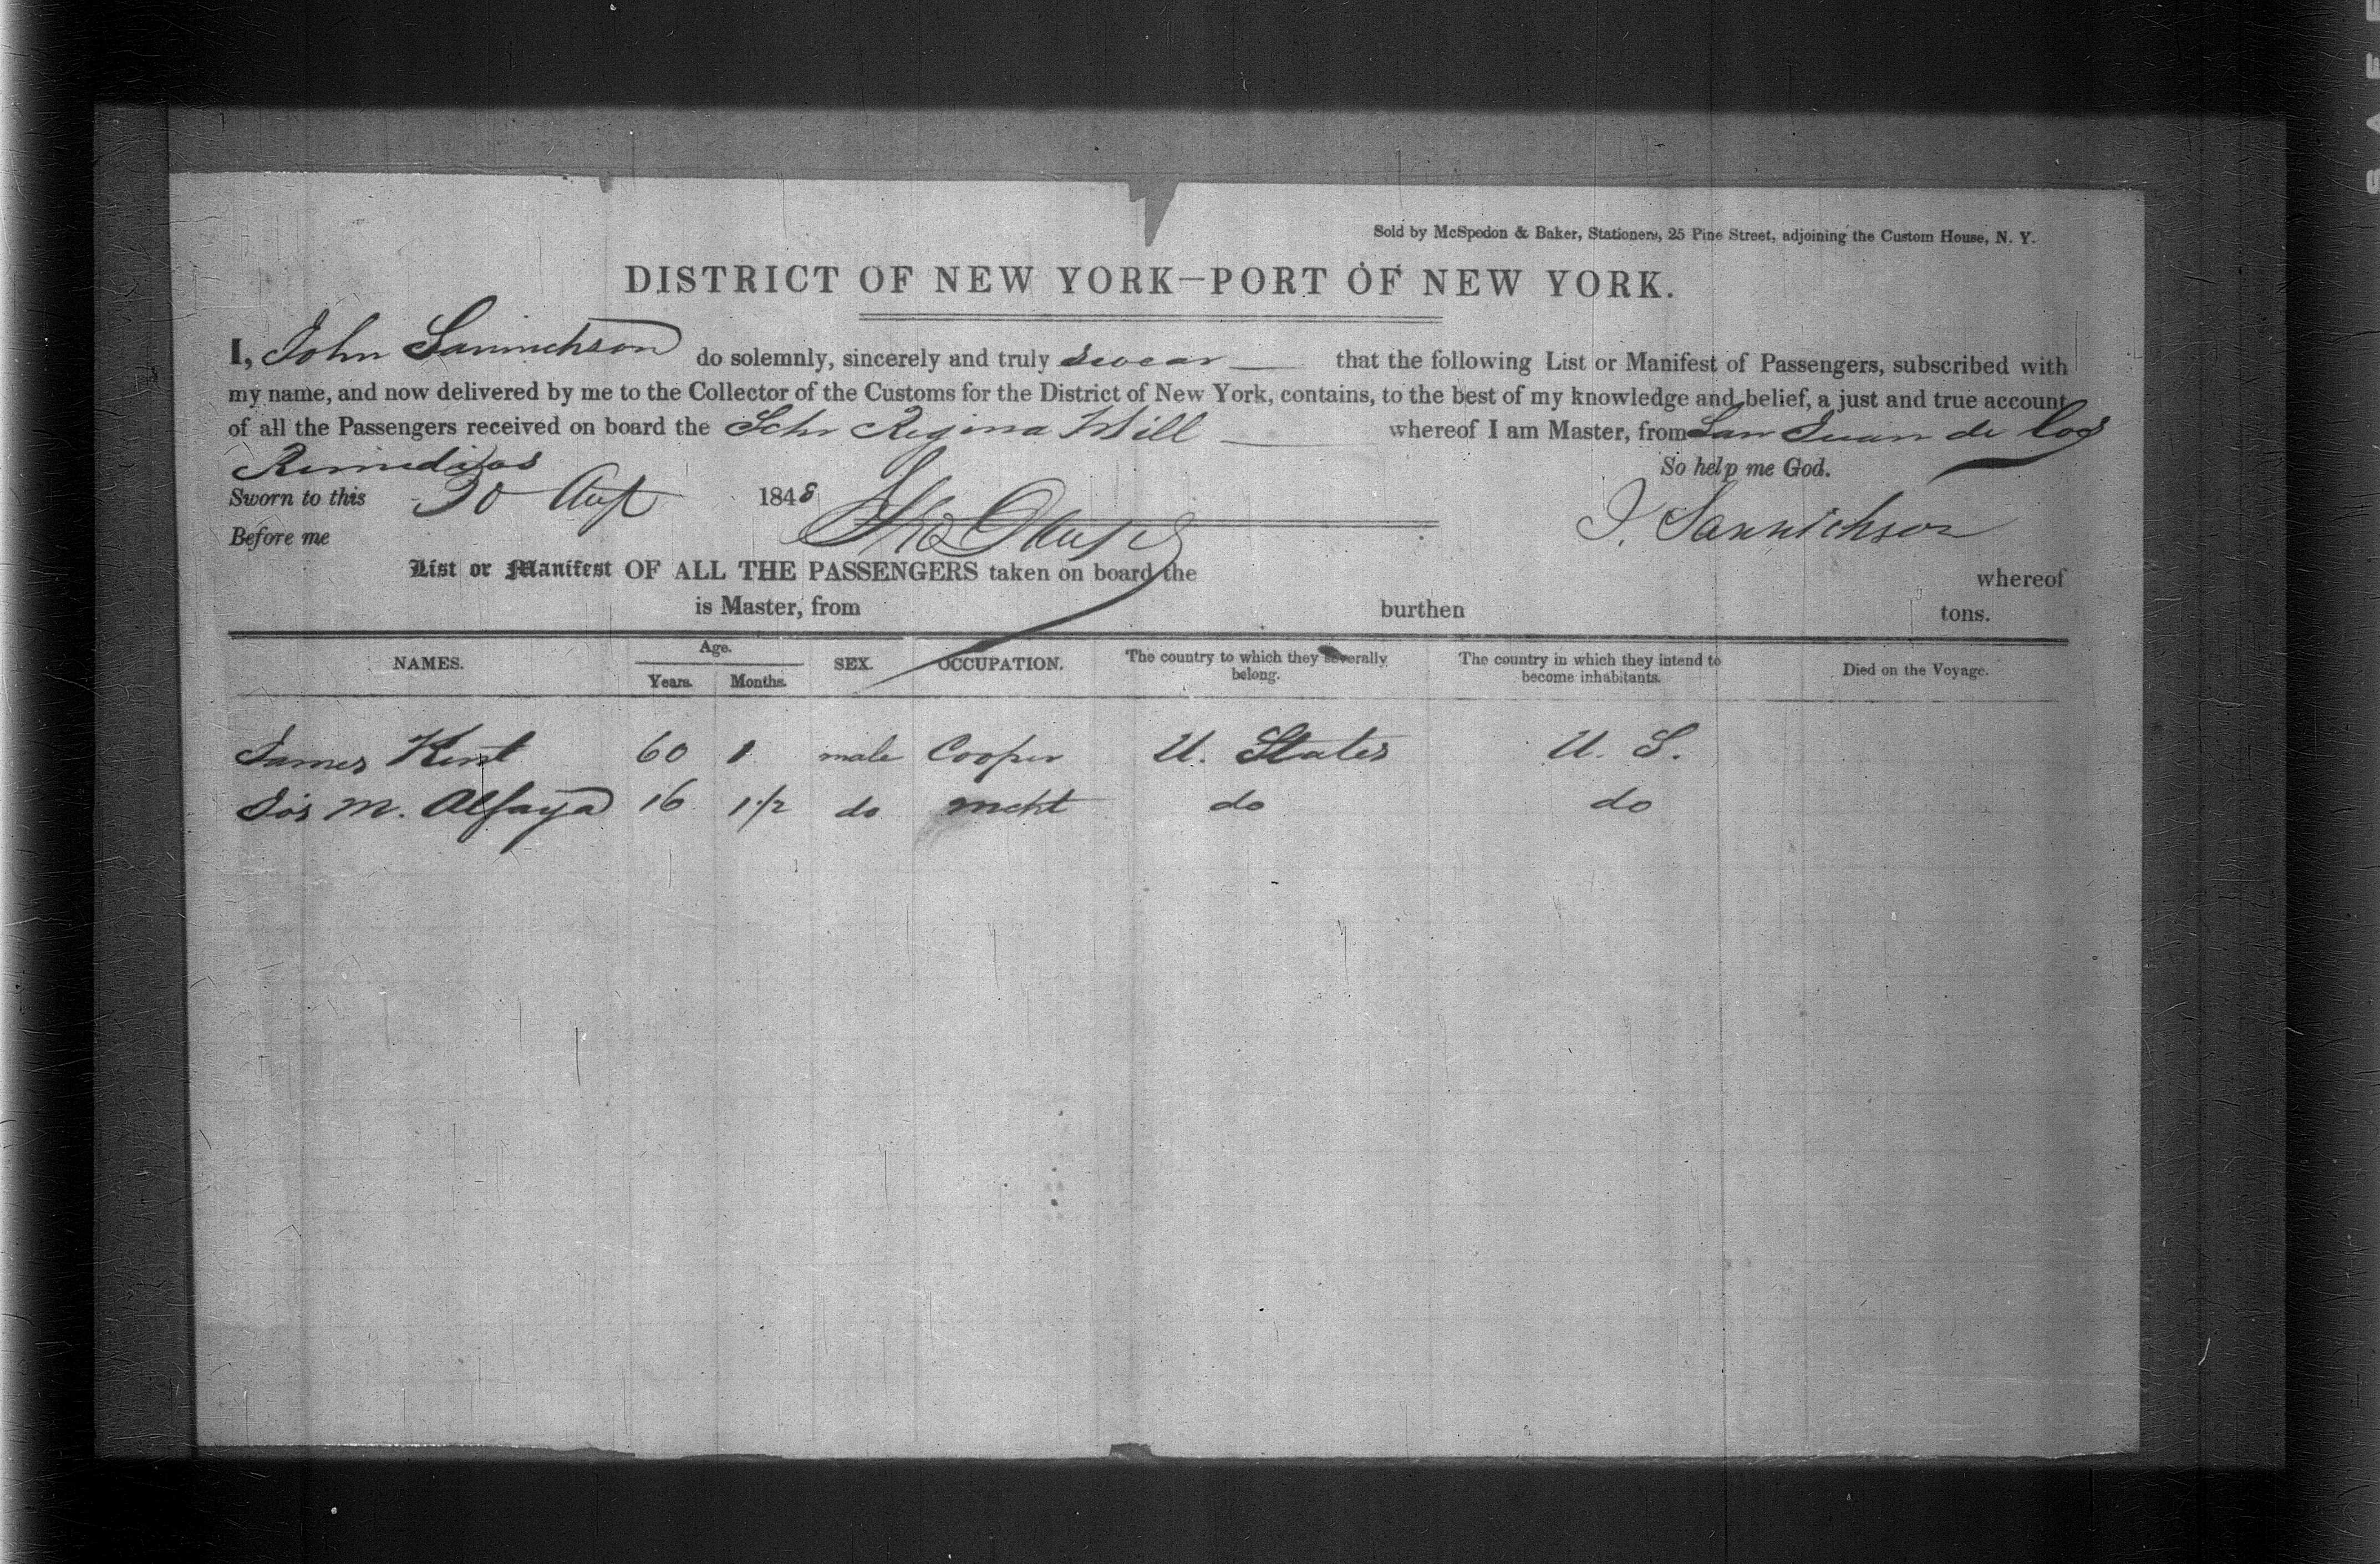 SAFE
Sold by McSpedon & Baker, Stationers, 25 Pine Street, adjoining the Custom House, N. Y.
DISTRICT OF NEW YORK—PORT OF NEW YORK.
I, John do solemnly, sincerely and truly swear that the following List or Manifest of Passengers, subscribed with
my name, and now delivered by me to the Collector of the Customs for the District of New York, contains, to the best of my knowledge and belief, a just and true account
of all the Passengers received on board the Schr Regina Hill whereof I am Master, from San Juan de los
Remedios So help me God.
Sworn to this 30 Augt 1848
Before me J. Sannichson
List or Manifest OF ALL THE PASSENGERS taken on board the whereof
is Master, from burthen tons.
NAMES. Age. Years. Months. SEX. OCCUPATION. The country to which they severally belong. The country in which they intend to become inhabitants. Died on the Voyage.
James Kent 60 1 male Cooper U. States U. S.
Jos M. Alfaya 16 1 1/2 do mcht do do